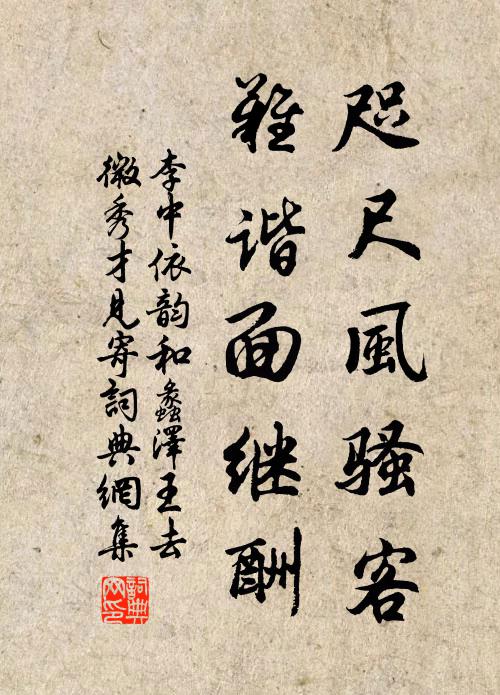 咫尺風骚客
難谐面继酬
李中依韵和蠡澤王去
微秀才見寄詞典網集
詞典
网印